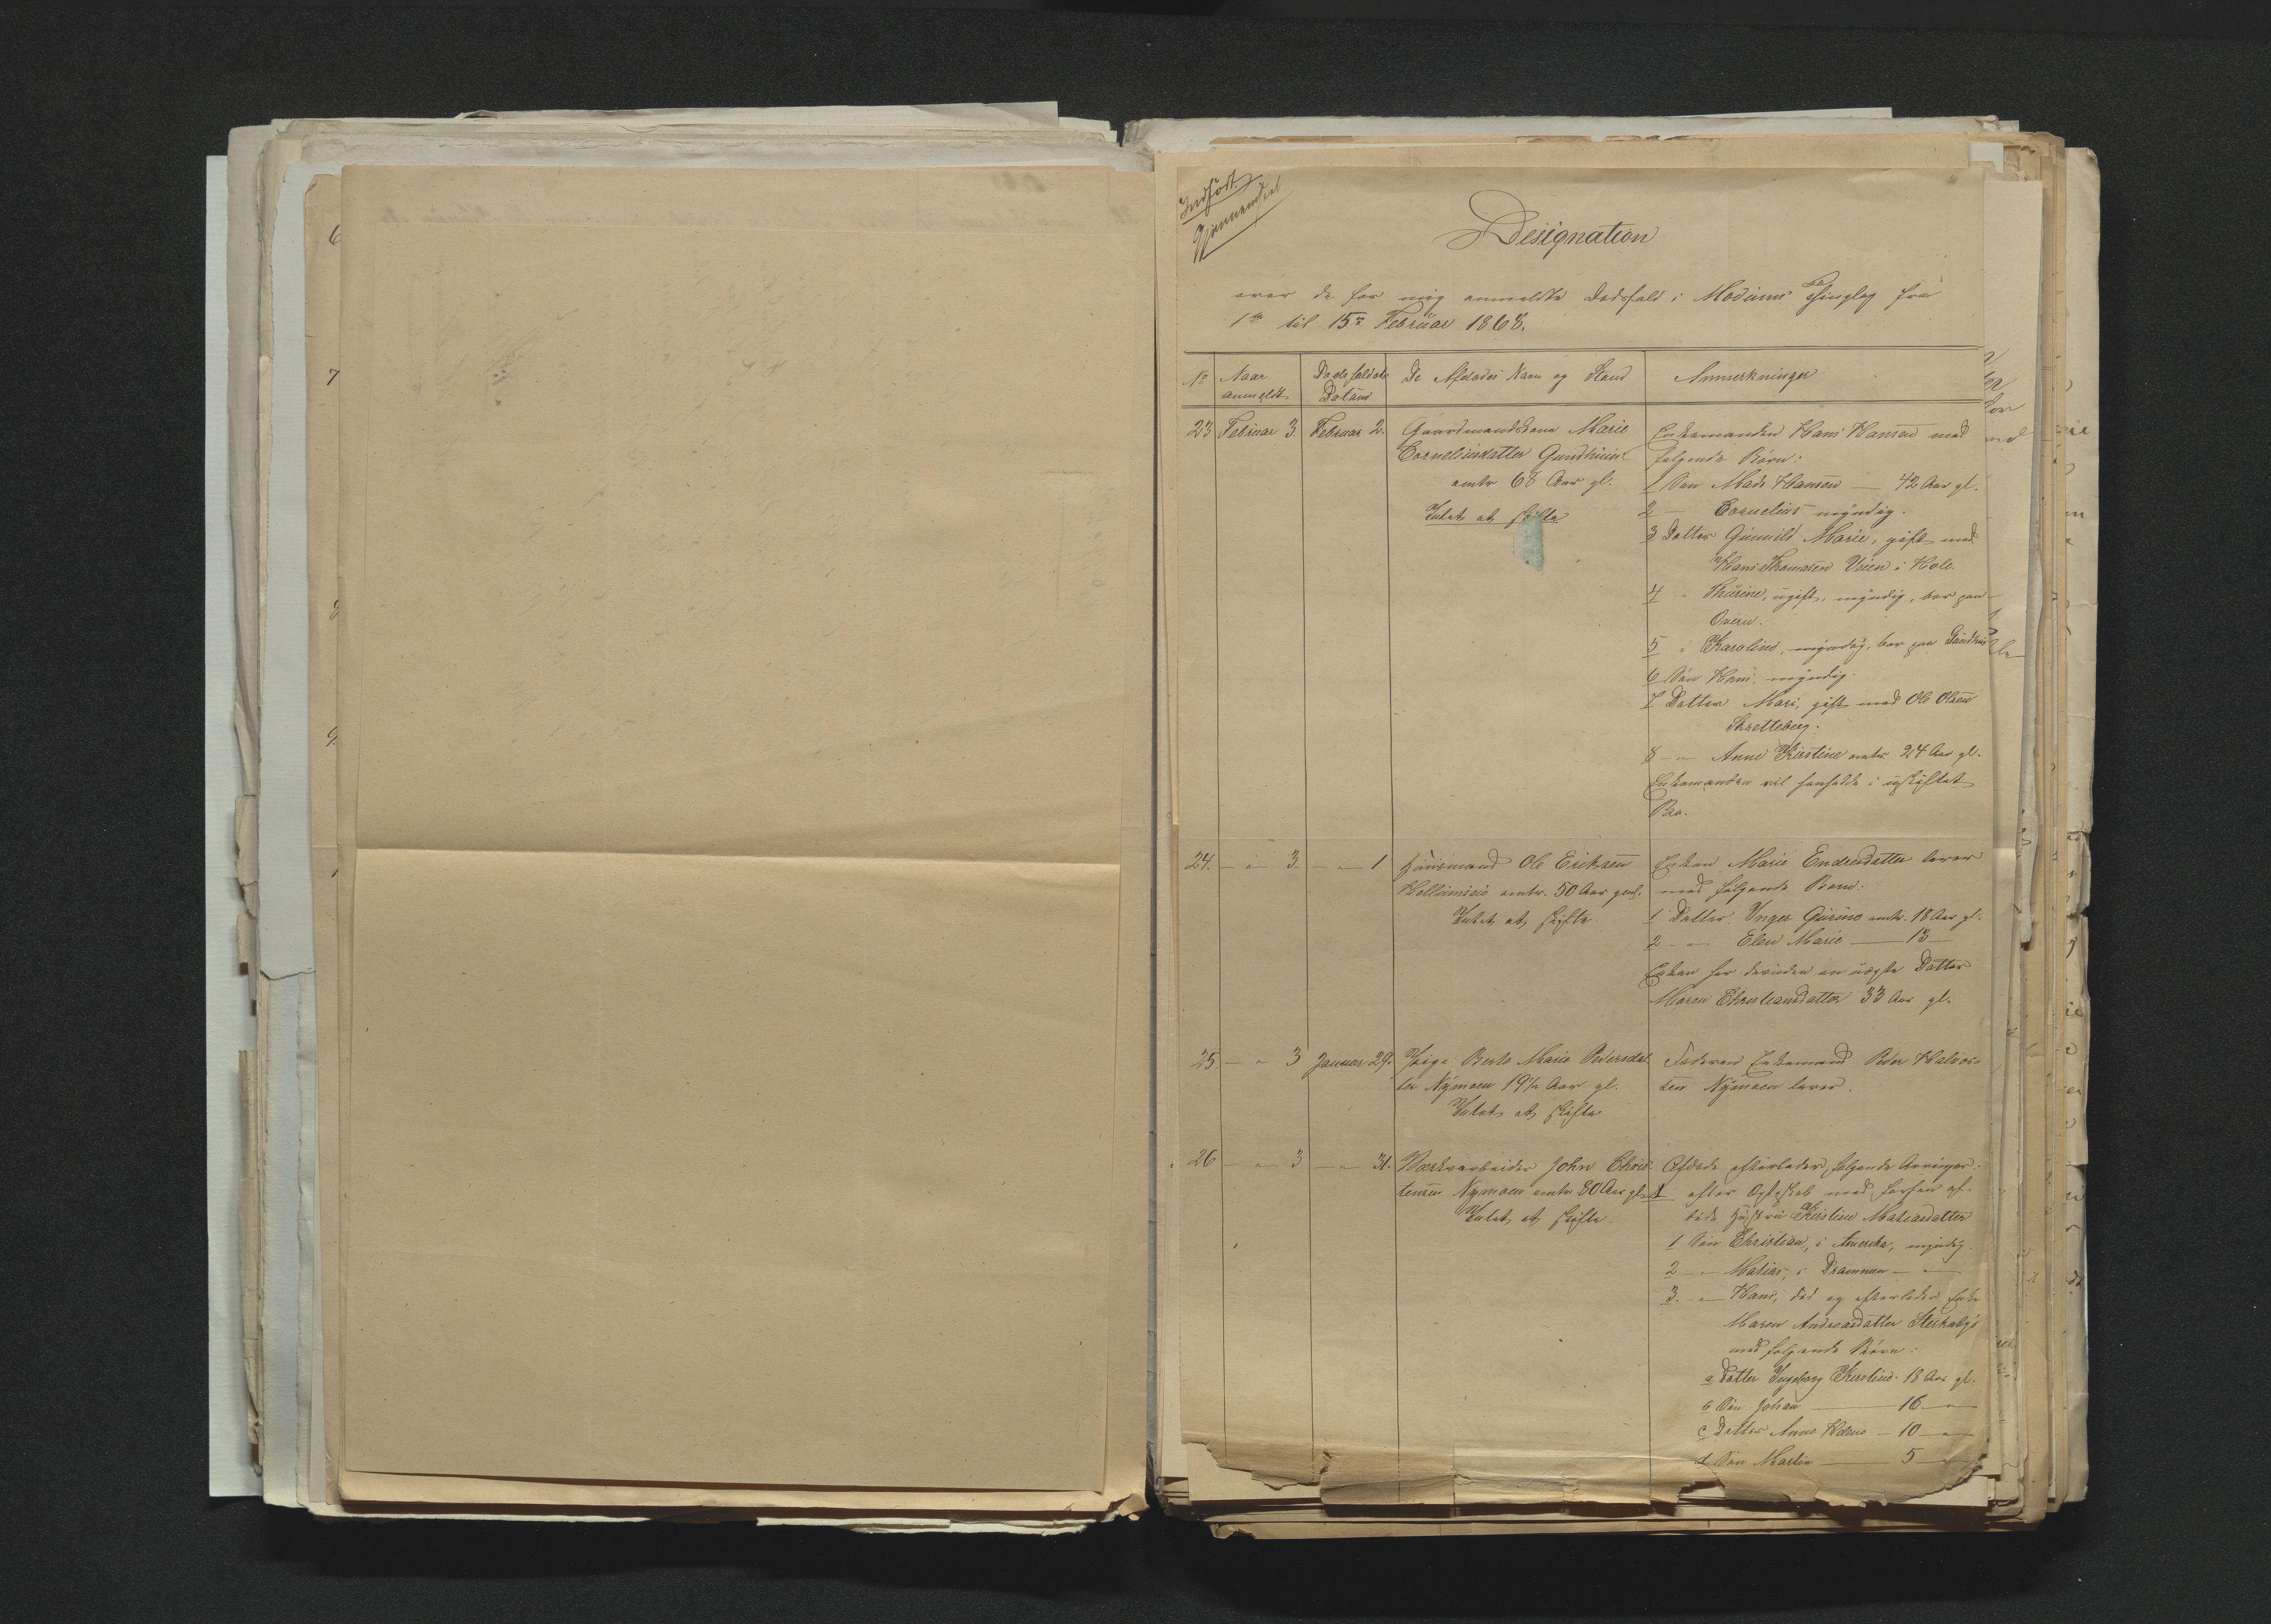 Indført.
Gjennemseet
Designation
over de for mig anmeldte Dødsfald i Modums Thinglag fra
1ste til 15de Februar 1868.
No
Naar anmeldt
Dødsfaldets Datum
De Afdødes Navn og Stand
Anmærkninger
23 Februar 3. Februar 2.
Gaardmandskone Marie
Corneliusdatter Gundhuus
omtr 68 Aar gl.
Intet at skifte
Enkemanden Hans Hansen med
følgende Børn:
1 Søn Mads Hansen — 42 Aar gl.
2 — Cornelius myndig.
3 Datter Gunnild Marie, gift med
Hans Thomasen Veien i Hole.
4 " Thurine, ugift, myndig, bor paa
Overn.
5 " Karoline, myndig, bor paa Gundhus
6 Søn Hans, myndig.
7 Datter Mari, gift med Ole Olsen
Skretteberg.
8 — " — Anne Kirstine omtr. 24 Aar gl.
Enkemanden vil hensidde i uskiftet
Bo.
24. — " — 3. — " — 1
Huusmand Ole Eriksen
omtr. 50 Aar gml.
Intet at skifte
Enken Marie Endresdatter lever
med følgende Børn:
1 Datter Inger Gurine omtr. 18 Aar gl.
2 — " — Elen Marie — 13 —
Enken har desuden en uægte Datter
Maren Christiansdatter 33 Aar gl.
25 — " — 3 Januar 29.
Pige Berte Marie Pedersdat-
ter Nymoen 19½ Aar gl.
Intet at skifte
Faderen Enkemand Peder Halvor-
sen Nymoen lever.
26 — " — 3 — " — 31.
Værksarbeider John Chris-
tensen Nymoen omtr 80 Aar gl.
Intet at skifte
Afdøde efterlader følgende Arvinger:
efter Ægteskab med forhen af-
døde Hustru Kirstine Matiasdatter
1 Søn Christian, i Amerika, myndig.
2 — " — Matias, i Drammen — " —
3. — " — Hans, død og efterlader Enke
Maren Andreasdatter Sterkebye
med følgende Børn:
a Datter Ingeborg Kirstine 18 Aar gl.
b Søn Johan — 16 — " —
c Datter Anne Helene — 10 — " —
d Søn Martin — 5 — " —